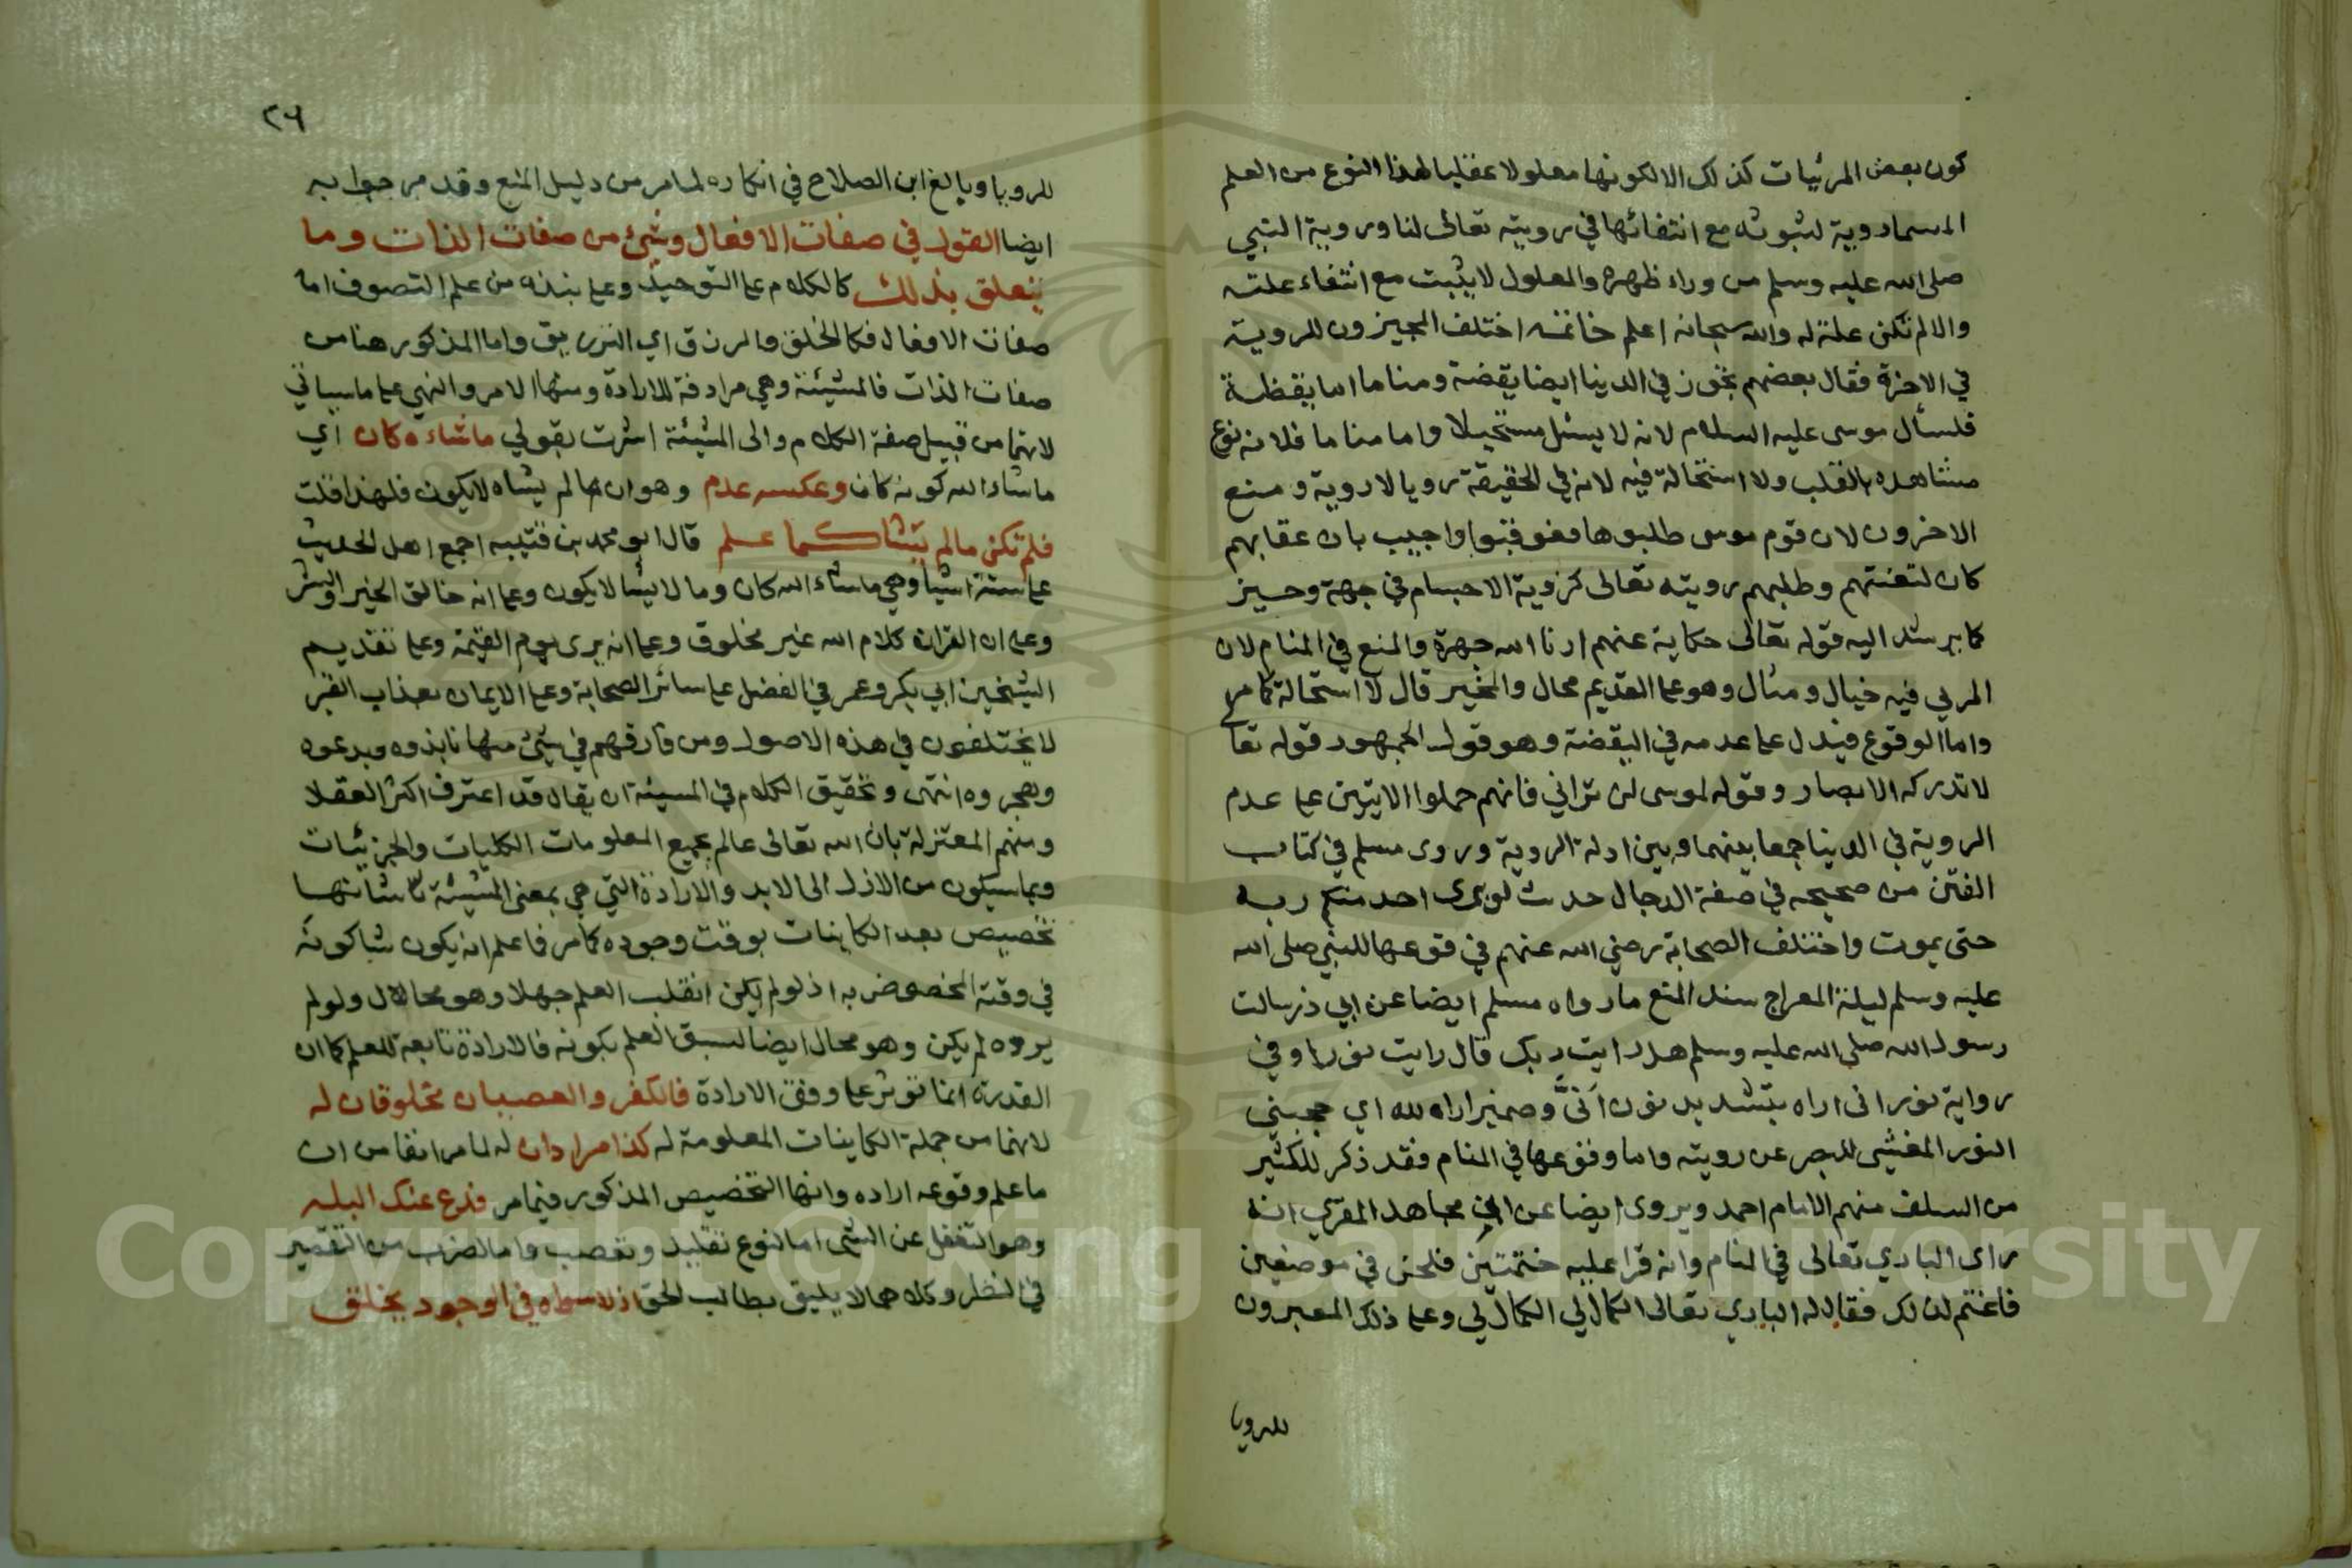 كون بعض المرئيات كذلك الا لكونها معلولا عقليا لهذا النوع من العلم
المسما روية لثبوته مع انتفائها في رويته تعالى لنا وروية النبي
صلى الله عليه وسلم من وراء ظهره والمعلول لا يثبت مع انتفاء علته
والا لم تكن علة له والله سبحانه اعلم خاتمه اختلف المجيزون للروية
في الاخرة فقال بعضهم تجوز في الدنيا ايضا يقضة ومناما اما يقظة
فلسأل موسى عليه السلام لانه لا يسئل مستحيلا واما مناما فلانه نوع
مشاهده بالقلب ولا استحالة فيه لانه في الحقيقة رويا لا روية ومنع
الاخرون لان قوم موسى طلبوها فعوقبوا واجيب بان عقابهم
كان لتعنتهم وطلبهم رويته تعالى كروية الاجسام في جهة وحيز
كما يرشد اليه قوله تعالى حكاية عنهم ارنا الله جهرة والمنع في المنام لان
المربي فيه خيال ومثال وهو على القديم محال والمخير قال لا استحالة كما مر
واما الوقوع فيدل على عدمه في اليقضة وهو قول الجمهور قوله تعا
لا تدركه الابصار وقوله لموسى لن تراني فانهم حملوا الايتين على عدم
الروية في الدينا جمعا بينهما وبين ادلة الروية وروى مسلم في كتاب
الفتن من صحيحه في صفة الدجال حدث لو يرى احد منكم ربه
حتى يموت واختلف الصحابة رضي الله عنهم في قوعها للنبي صلى الله
عليه وسلم ليلة المعراج سند المنع ما رواه مسلم ايضا عن ابي ذر سالت
رسول الله صلى الله عليه وسلم هل رايت ربك قال رايت نورا وفي
رواية نور انى اراه بتشديد نون اَنَّى وضمير اراه لله اي حجبني
النور المغشي للبصر عن رويته واما وقوعها في المنام فقد ذكر للكثير
من السلف منهم الامام احمد ويروى ايضا عن مجاهد المقري انه
راى الباري تعالى في المنام وانه قرا عليه ختمتين فلحن في موضعين
فاغتم لذلك فقال له الباري تعالى الكمال لي الكمال لي وعلى ذلك المعبرون
للرويا
٢٦
للرويا وبالغ ابن الصلاح في انكاره لما مر من دليل المنع وقد مر جوابه
ايضا القول في صفات الافعال وشيئ من صفات الذات وما
يتعلق بذلك كالكلام على التوحيد وعلى نبذه من علم التصوف اما
صفات الافعال فكالخلق والرزق اي الترزيق واما المذكور هنا من
صفات الذات فالمشيئة وهي مرادفة للارادة ومنها الامر والنهي على ما سياتي
لانهما من قبيل صفة الكلام والى المشيئة اشرت بقولي ما شاءه كان اي
ما شاء الله كونه كان وعكسه عدم وهو ان ما لم يشاه لا يكون فلهذا قلت
فلم تكن ما لم يشا كما علم قال ابو محمد بن قتيبه اجمع اهل الحديث
على ستة اشيا وهي ما شاء الله كان وما لا يشا لا يكون وعلى انه خالق الخير والشر
وعلى ان القران كلام الله غير مخلوق وعلى انه يرى يوم القيمة وعلى تقديم
الشيخين ابي بكر وعمر في الفضل على سائر الصحابة وعلى الايمان بعذاب القبر
لا يختلفون في هذه الاصول ومن فارقهم في شيئ منها نابذوه وبدعوه
وهجروه انتهى وتحقيق الكلام في المسيئة ان يقال قد اعترف اكثر العقلا
ومنهم المعتزلة بان الله تعالى عالم بجميع المعلومات الكليات والجزئيات
وبما سيكون من الازل الى الابد والارادة التي هي بمعنى المشيئة شانها
تخصيص بعد الكاينات بوقت وجوده كما مر فاعلم انه يكون شا كونه
في وقته المخصوص به اذ لو لم يكن انقلب العلم جهلا وهو محال ولو لم
يرده لم يكن وهو محال ايضا لسبق العلم بكونه فالارادة تابعة للعلم كما ان
القدرة انما توثر على وفق الارادة فالكفر والعصيان مخلوقان له
لانهما من جملة الكاينات المعلومة له كذا مرادان له لما مر انفا من ان
ما علم وقوعه اراده وانها التخصيص المذكور فيما مر فدع عنك البله
وهو التغفل عن الشي اما لنوع تقليد وتعصب واما لضرب من التقصير
في النظر وكلاهما لا يليق بطالب الحق اذ لا سواه في الوجود يخلق
Copyright © King Saud University